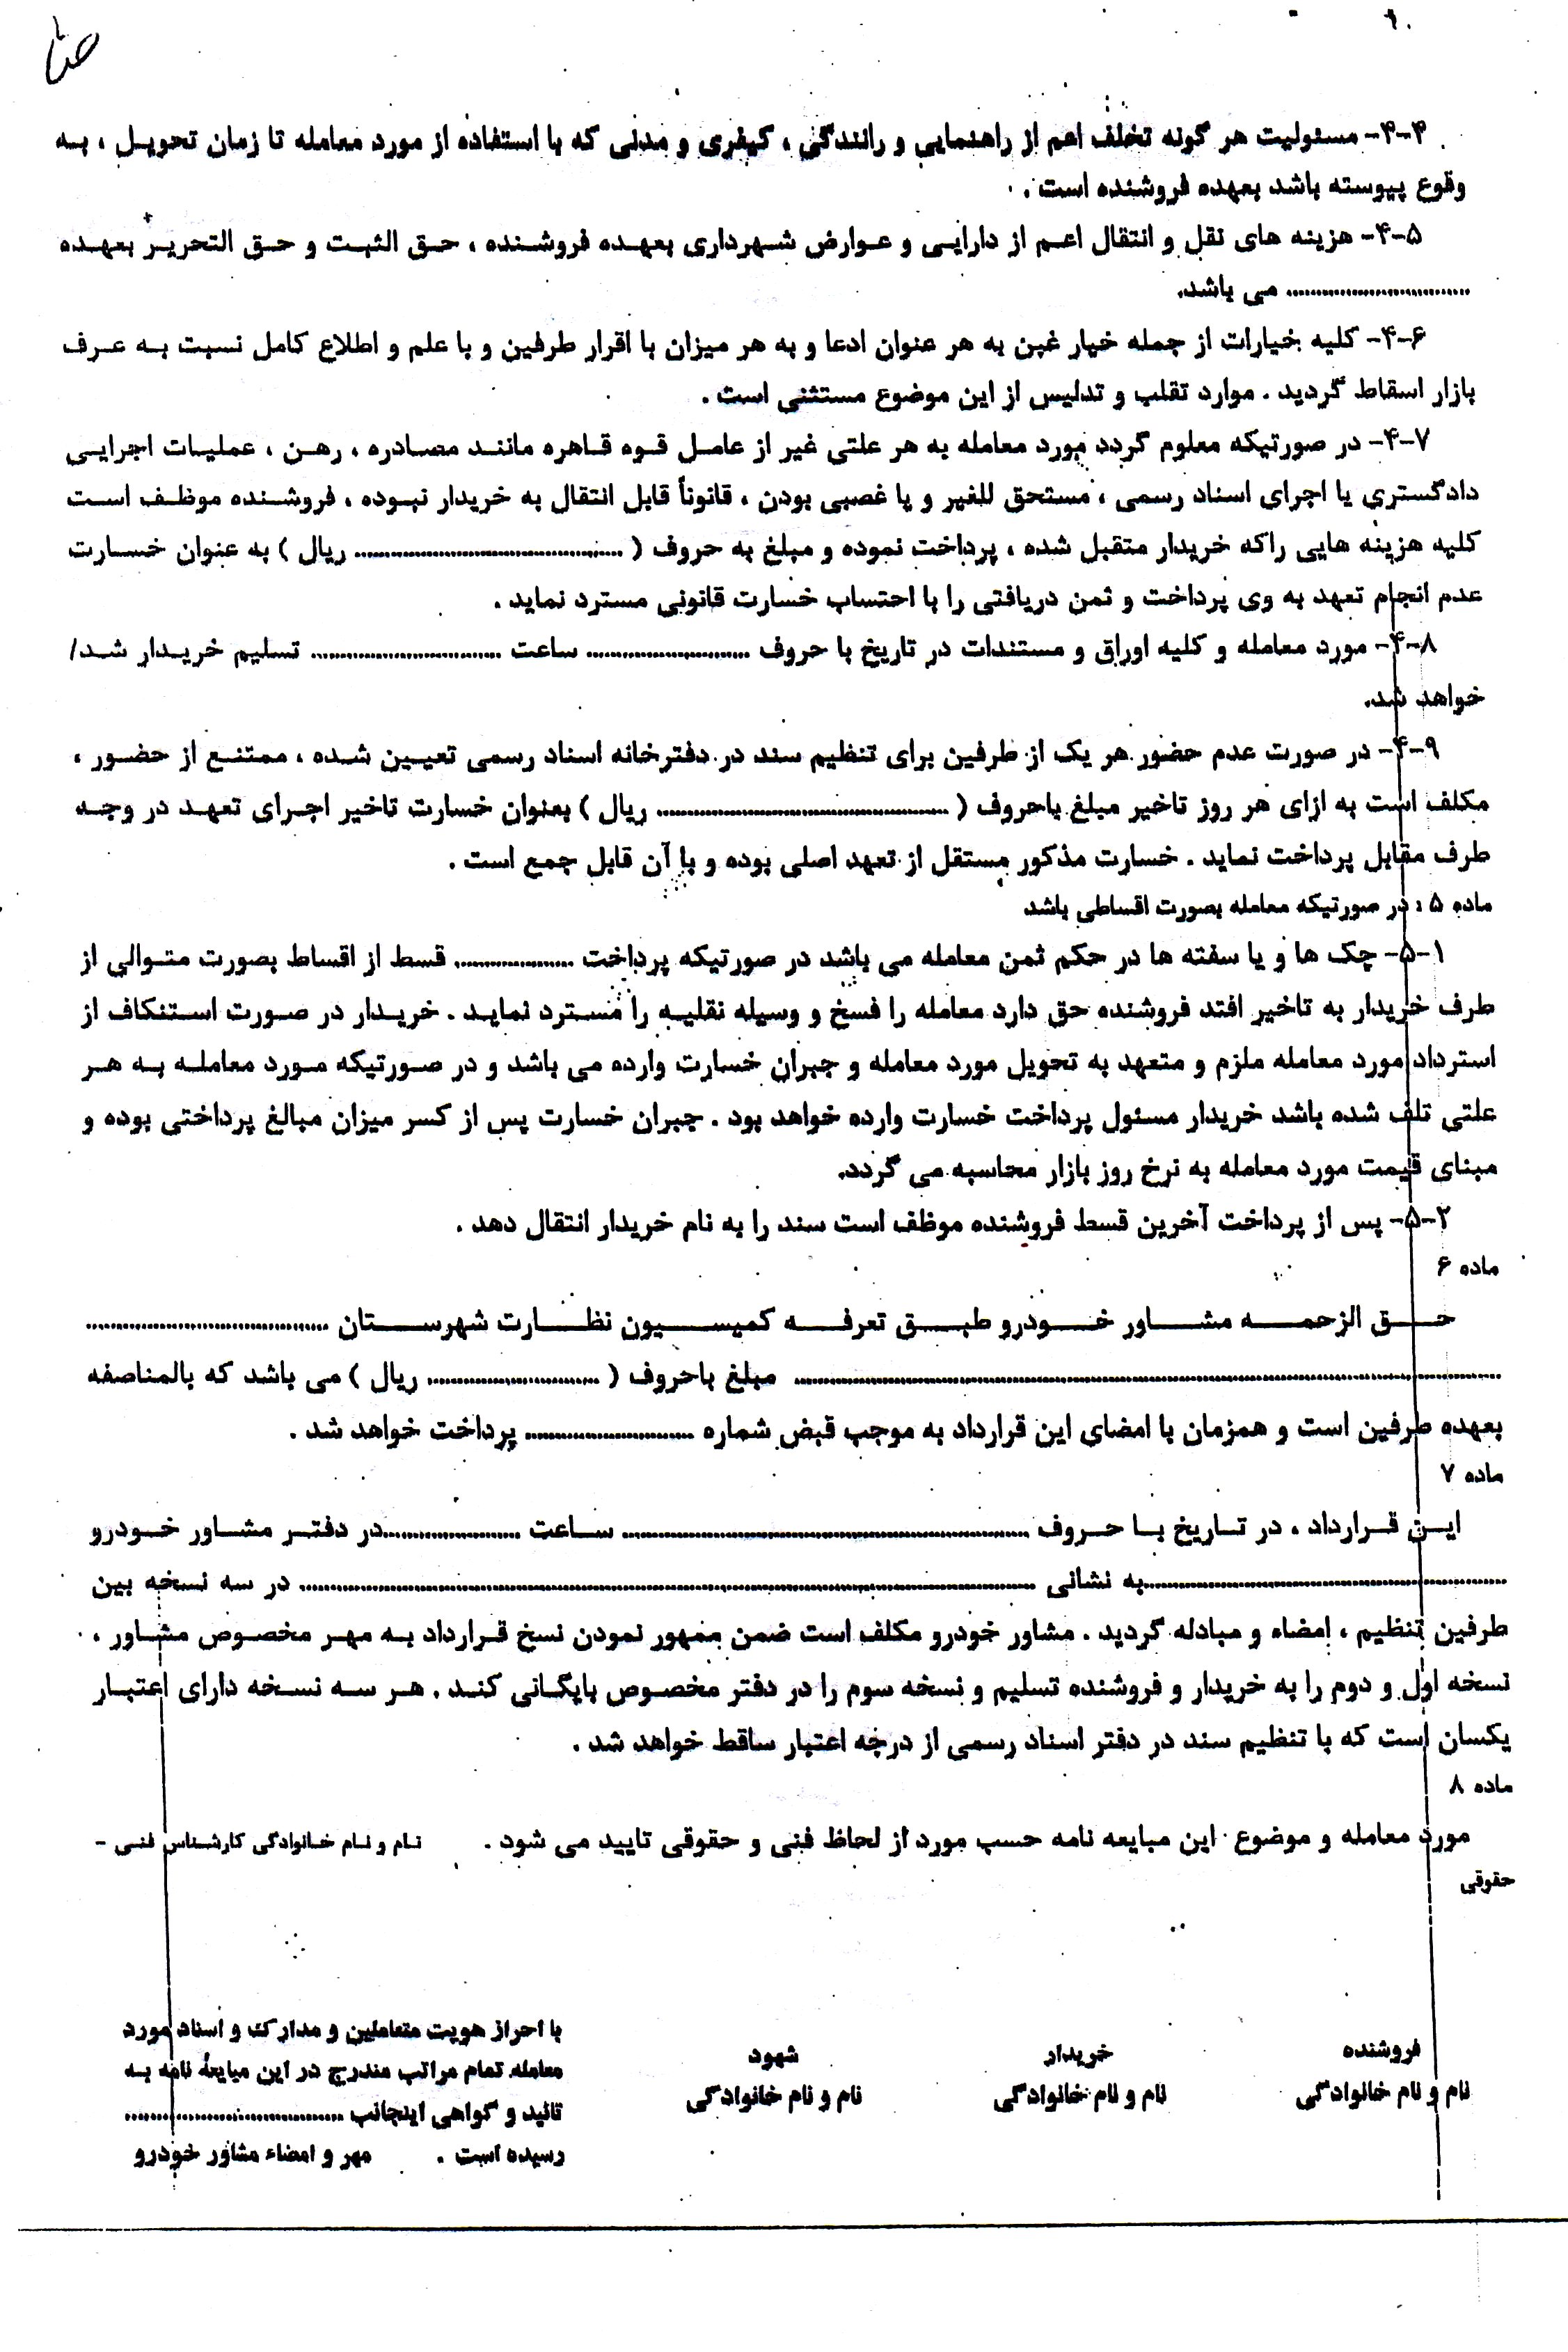 ۴-۴- مسئولیت هر گونه تخلف اعم از راهنمایی و رانندگی ، کیفری و مدنی که با استفاده از مورد معامله تا زمان تحویل ، به
وقوع پیوسته باشد بعهده فروشنده است .
۴-۵- هزینه های نقل و انتقال اعم از دارایی و عوارض شهرداری بعهده فروشنده ، حق الثبت و حق التحریر بعهده
.............................. می باشد.
۴-۶- کلیه خیارات از جمله خیار غبن به هر عنوان ادعا و به هر میزان با اقرار طرفین و با علم و اطلاع کامل نسبت به عرف
بازار اسقاط گردید . موارد تقلب و تدلیس از این موضوع مستثنی است .
۴-۷- در صورتیکه معلوم گردد مورد معامله به هر علتی غیر از عامل قوه قاهره مانند مصادره ، رهن ، عملیات اجرایی
دادگستری یا اجرای اسناد رسمی ، مستحق للغیر و یا غصبی بودن ، قانوناً قابل انتقال به خریدار نبوده ، فروشنده موظف است
کلیه هزینه هایی راکه خریدار متقبل شده ، پرداخت نموده و مبلغ به حروف ( .............................. ریال ) به عنوان خسارت
عدم انجام تعهد به وی پرداخت و ثمن دریافتی را با احتساب خسارت قانونی مسترد نماید .
۴-۸- مورد معامله و کلیه اوراق و مستندات در تاریخ با حروف .............................. ساعت .............................. تسلیم خریدار شد/
خواهد شد.
۴-۹- در صورت عدم حضور هر یک از طرفین برای تنظیم سند در دفترخانه اسناد رسمی تعیین شده ، ممتنع از حضور ،
مکلف است به ازای هر روز تاخیر مبلغ باحروف ( .............................. ریال ) بعنوان خسارت تاخیر اجرای تعهد در وجه
طرف مقابل پرداخت نماید . خسارت مذکور مستقل از تعهد اصلی بوده و با آن قابل جمع است .
ماده ۵ : در صورتیکه معامله بصورت اقساطی باشد
۵-۱- چک ها و یا سفته ها در حکم ثمن معامله می باشد در صورتیکه پرداخت .................... قسط از اقساط بصورت متوالی از
طرف خریدار به تاخیر افتد فروشنده حق دارد معامله را فسخ و وسیله نقلیه را مسترد نماید . خریدار در صورت استنکاف از
استرداد مورد معامله ملزم و متعهد به تحویل مورد معامله و جبران خسارت وارده می باشد و در صورتیکه مورد معامله به هر
علتی تلف شده باشد خریدار مسئول پرداخت خسارت وارده خواهد بود . جبران خسارت پس از کسر میزان مبالغ پرداختی بوده و
مبنای قیمت مورد معامله به نرخ روز بازار محاسبه می گردد.
۵-۲- پس از پرداخت آخرین قسط فروشنده موظف است سند را به نام خریدار انتقال دهد .
ماده ۶
حق الزحمه مشاور خودرو طبق تعرفه کمیسیون نظارت شهرستان ..............................
.............................. مبلغ باحروف ( .............................. ریال ) می باشد که بالمناصفه
بعهده طرفین است و همزمان با امضای این قرارداد به موجب قبض شماره .............................. پرداخت خواهد شد .
ماده ۷
این قرارداد ، در تاریخ با حروف .............................. ساعت ....................در دفتر مشاور خودرو
..............................به نشانی .............................. در سه نسخه بین
طرفین تنظیم ، امضاء و مبادله گردید . مشاور خودرو مکلف است ضمن ممهور نمودن نسخ قرارداد به مهر مخصوص مشاور ،
نسخه اول و دوم را به خریدار و فروشنده تسلیم و نسخه سوم را در دفتر مخصوص بایگانی کند . هر سه نسخه دارای اعتبار
یکسان است که با تنظیم سند در دفتر اسناد رسمی از درجه اعتبار ساقط خواهد شد .
ماده ۸
مورد معامله و موضوع این مبایعه نامه حسب مورد از لحاظ فنی و حقوقی تایید می شود . نام و نام خانوادگی کارشناس فنی -
حقوقی
فروشنده
نام و نام خانوادگی
خریدار
نام و نام خانوادگی
شهود
نام و نام خانوادگی
با احراز هویت متعاملین و مدارک و اسناد مورد
معامله تمام مراتب مندرج در این مبایعه نامه به
تائید و گواهی اینجانب ..............................
رسیده است . مهر و امضاء مشاور خودرو